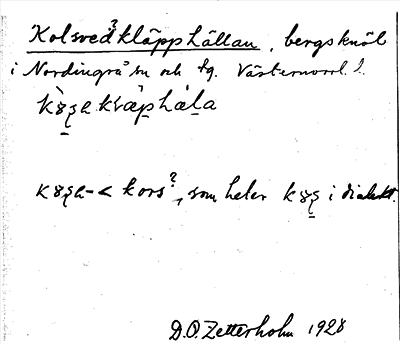 Kolsved?kläpphällan, bergsknöl
i Nordingrå sn och tg. Västernorrl. l.
kors?, som heter
i dialekt.
D.O. Zetterholm 1928